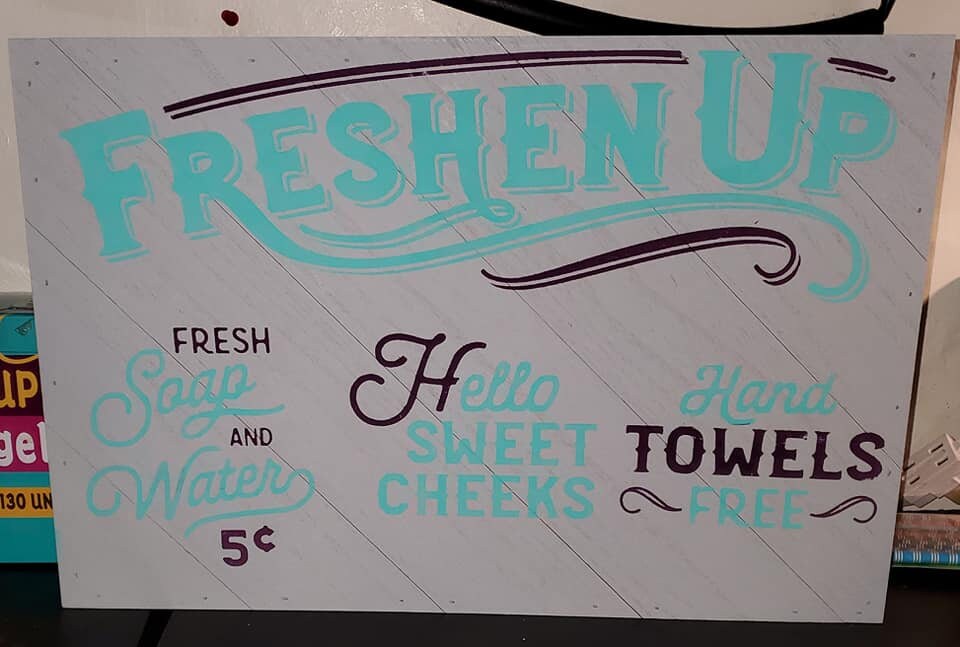 FRESHEN UP
FRESH
Soap
AND
Water
5¢
Hello
SWEET
CHEEKS
Hand
TOWELS
FREE
UP
gel
130 UN